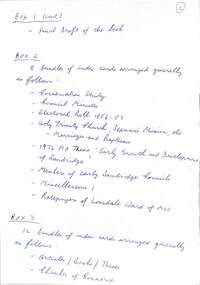 2
Box 1 (cont)
- Final Draft of the book
Box 2
8 bundles of index cards arranged generally
as follows:
- Conservation Study
- Council Minutes
- Electoral Roll 1956-57
- Holy Trinity Church, Seamen's Mission, etc
- Marriages and Baptisms
- 1976 MA Thesis "Early Growth and Development
of Sandridge"
- Members of early Sandridge Councils
- Miscellaneous 1
- Ratepayers of Lonsdale Ward of MCC
Box 3
12 bundles of index cards arranged generally
as follows:
- Articles / Books / Theses
- Chamber of Commerce